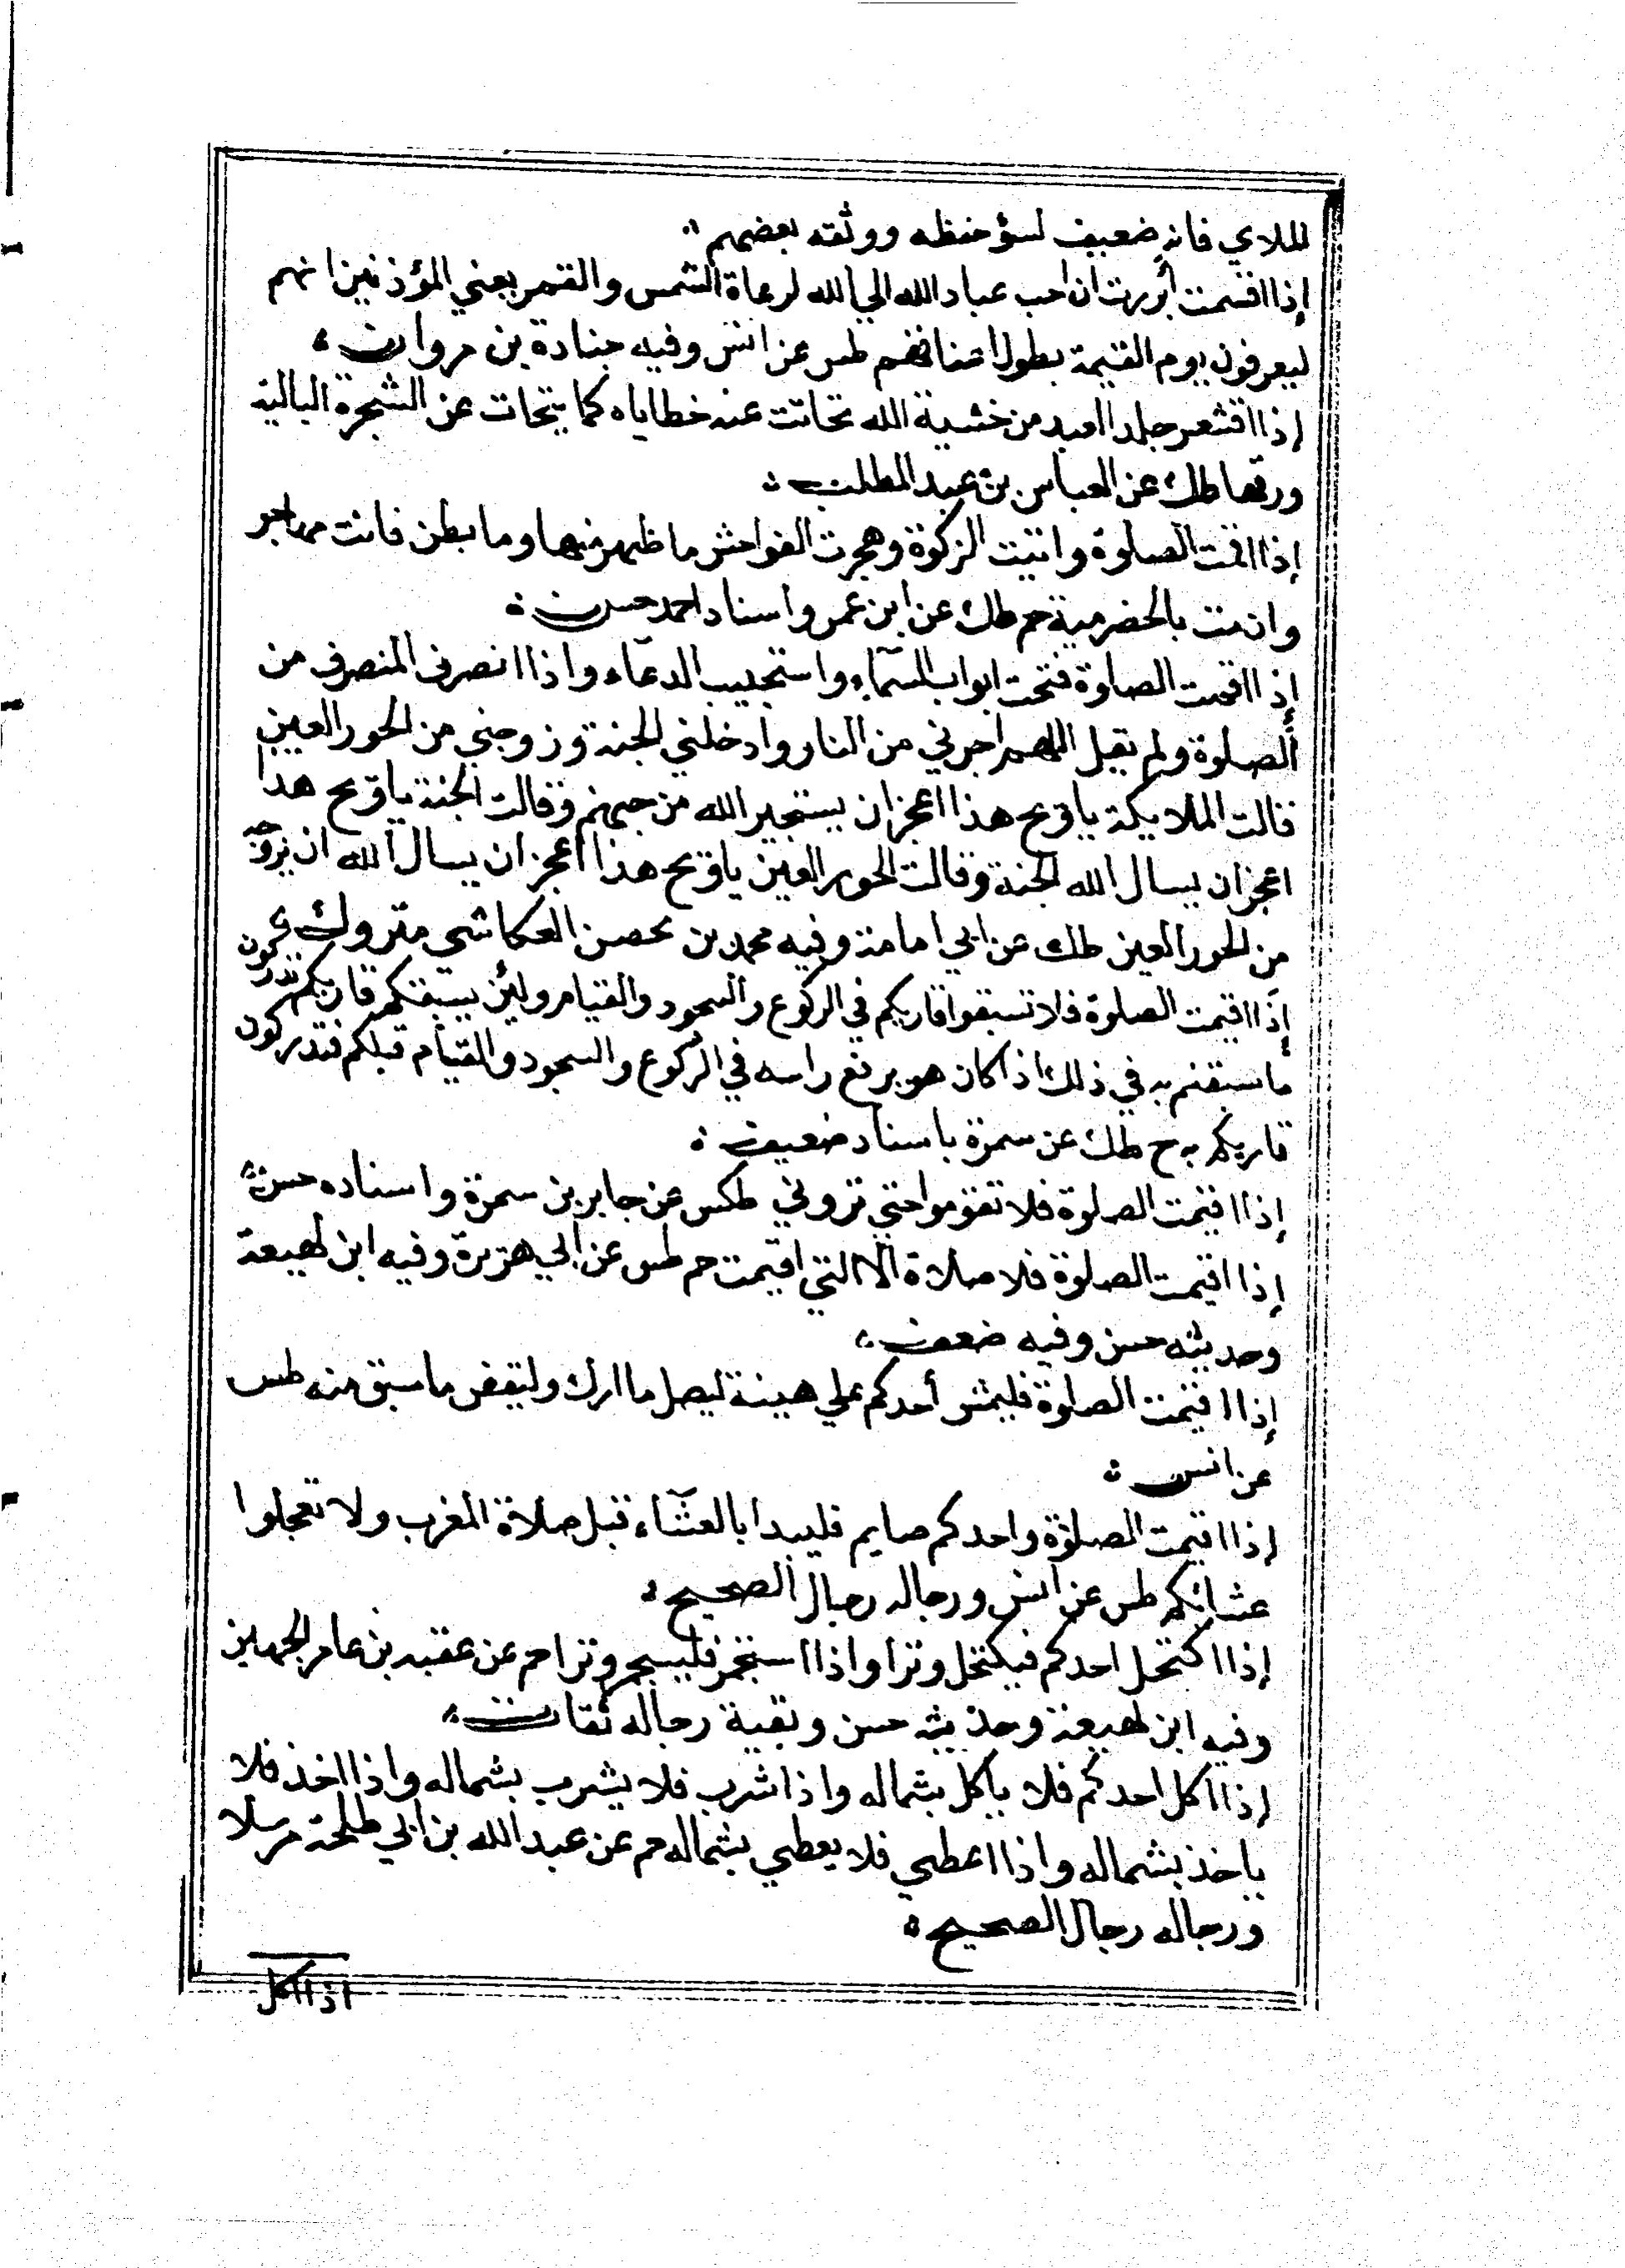 للملاي فانه ضعيف لسؤ حفظه ووثقه بعضهم
إذا اقسمت أبررت ان احب عباد الله الي الله لرعاة الشمس والقمر يعني المؤذنين انهم
ليعرفون يوم القيمة بطول اعناقهم طس عن انس وفيه جنادة بن مروان
إذا اقشعر جلد العبد من خشية الله تحاتت عنه خطاياه كما يتحات عن الشجرة البالية
ورقها طك عن العباس بن عبد المطلب
إذا اقمت الصلوة واتيت الزكوة وهجرت الفواحش ما ظهر منها وما بطن فانت مهاجر
وان مت بالحضرمية حم طك عن ابن عمرو اسناد احمد حسن
إذا اقيمت الصلوة فتحت ابواب السمآء واستجيب الدعآء واذا انصرف المنصرف من
الصلوة ولم يقل اللهم اجرني من النار وادخلني الجنة وزوجني من الحور العين
قالت الملايكة ياويح هذا اعجز ان يستجير الله من جهنم وقالت الجنة ياويح هذا
اعجز ان يسال الله الجنة وقالت الحور العين ياويح هذا اعجز ان يسال الله ان يزوجه
من الحور العين طك عن ابي امامة وفيه محمد بن محصن العكاشي متروك
إذا اقيمت الصلوة فلا تسبقوا قاريكم في الركوع والسجود والقيام ولئن يسبقكم قاريكم تدركون
ما سبقتم به في ذلك اذا كان هو يرفع راسه في الركوع والسجود والقيام قبلكم فتدركون
قاريكم طك عن سمرة باسناد ضعيف
إذا اقيمت الصلوة فلا تقوموا حتي تروني طكس عن جابر بن سمرة واسناده حسن
إذا اقيمت الصلوة فلا صلاة الا التي اقيمت حم طس عن ابي هريرة وفيه ابن لهيعة
وحديثه حسن وفيه ضعف
إذا اقيمت الصلوة فليمش أحدكم علي هينة ليصل ما ادرك وليقض ما سبق منه طس
عن انس
إذا اقيمت الصلوة واحدكم صايم فليبدا بالعشآء قبل صلاة المغرب ولا تعجلوا
عشائكم طس عن انس ورجاله رجال الصحيح
إذا اكتحل احدكم فيكتحل وترا واذا استجمر فليستجمر وترا حم عن عقبه بن عامر الجهين
وفيه ابن لهيعة وحديثه حسن وبقية رجاله ثقات
إذا اكل احدكم فلا ياكل بشماله واذا شرب فلا يشرب بشماله واذا اخذ فلا
ياخذ بشماله واذا اعطي فلا يعطي بشماله حم عن عبد الله بن ابي طلحة مرسلا
ورجاله رجال الصحيح
اذا اكل